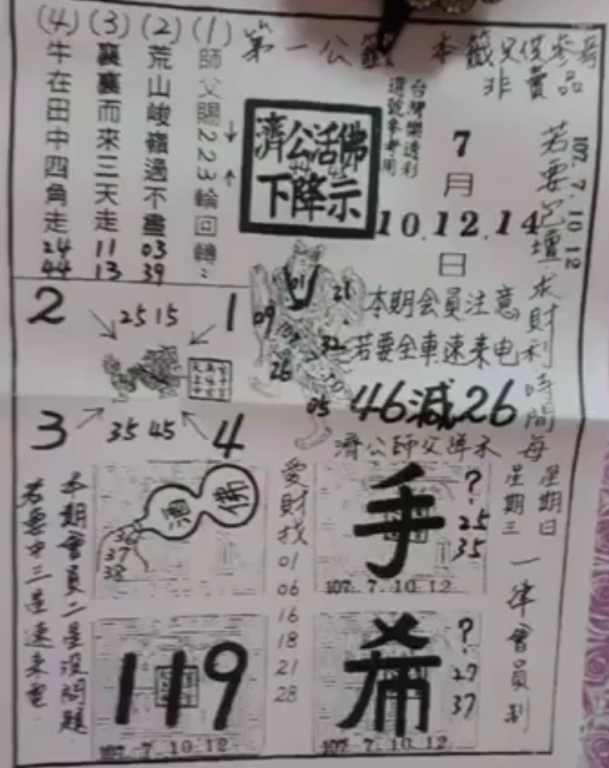 第一公籤 本籤只供參考
非賣品
(1)師父賜223輪回轉
(2)荒山峻嶺過不盡 03 39
(3)裏裏而來三天走 11 13
(4)牛在田中四角走 24 44
濟公活佛
下降示
台灣樂透彩
選號參考用
7
月
10.12.14
日
107.7.10.12
若要 壇求財利時間每
星期日
星期三
一律會員制
2
25 15
1
3
35 45
4
01
21
09
32
26
05
本期会員注意
若要全車速来电
46減26
濟公師父
本期會員二星沒問題
若要中三星速來電
佛
36
37
38
愛財找
01
06
16
18
21
28
手
?
25
35
107.7.10.12
119
107.7.10.12
希
?
27
37
107.7.10.12